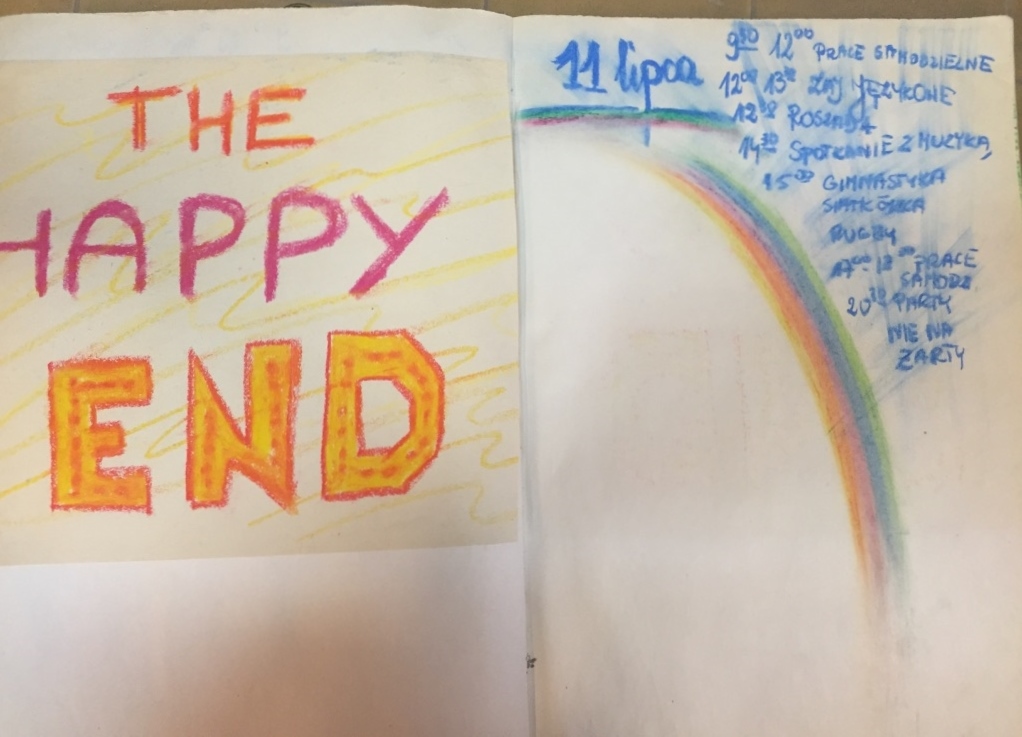 THE
HAPPY
END
11 lipca
9³⁰ 12⁰⁰ PRACE SAMODZIELNE
12⁰⁰ 13³⁰ ZAJ JĘZYKOWE
ROSZADA
14³⁰ SPOTKANIE Z MUZYKĄ
15⁰⁰ GIMNASTYKA
SIATKÓWKA
RUGBY
17⁰⁰ PRACE
SAMODZ.
20³⁰ PARTY
NIE NA
ŻARTY